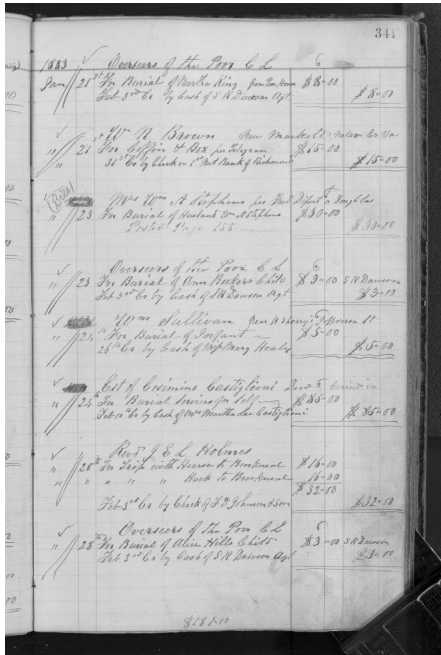 341
1883 Overseers of the Poor C L
Jan 21st For Burial of Martha King from Poor House $8-00
Feb 3rd Cr by Cash of S R Dawson Agt $8-00
Wm R Brown New Market Nelson Co Va
" 21st For Coffin & Box per Telegram $15-00
31st Cr by Check on 1st Nat Bank of Richmond $15-00
Mrs Wm A Stephens
" 23 For Burial of Husband Wm A Stephens $30-00
Posted Page 155 $30-00
Overseers of the Poor C L
" 23 For Burial of Ann Bookers Child $3-00 S R Dawson
Feb 3rd Cr by Cash of S R Dawson Agt $3-00
Wm Sullivan Jefferson St
" 24th For Burial of Infant $5-00
Cr by Cash of Mary Healy $5-00
Est of Cosimino Castiglioni Decd
" 24th For Burial Services for Self $85-00
Feb 10th Cr by Cash of Mrs Martha Lee Castiglioni $85-00
Revd J E L Holmes
" 28th For Trip with Hearse to Brookneal $16-00
" " " " " Hack to Brookneal 16-00
$32-00
Feb 3rd Cr by Check of Johnson & Son $32-00
Overseers of the Poor C L
" 28th For Burial of Alice Hills Child $3-00 S R Dawson
Feb 3rd Cr by Cash of S R Dawson Agt $3-00
$181-00